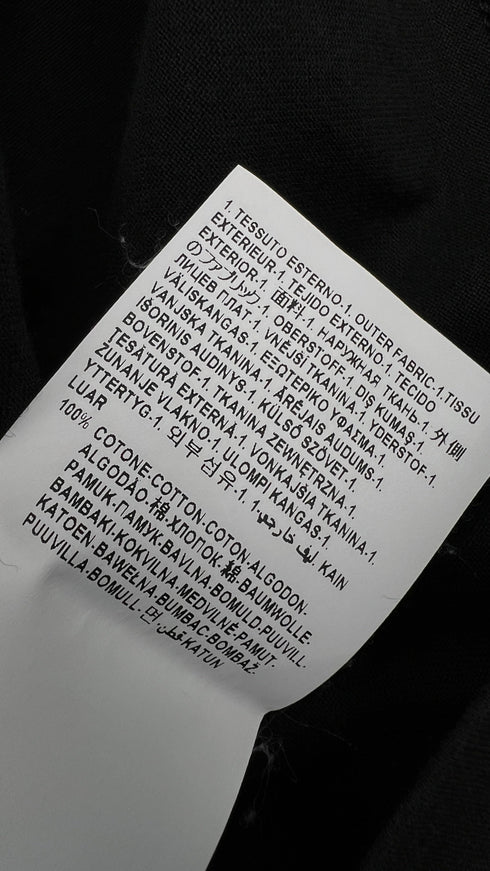 1. TESSUTO ESTERNO.1. OUTER FABRIC.1.TISSU
EXTERIEUR.1. TEJIDO EXTERNO.1. TECIDO
EXTERIOR.1. 面料.1. НАРУЖНАЯ ТКАНЬ.1. 外側
のファブリック.1. OBERSTOFF.1. DIŞ KUMAŞ.1.
ЛИЦЕВ ПЛАТ.1. VNĚJŠÍ TKANINA.1. YDERSTOF.1.
VÄLISKANGAS.1. ΕΞΩΤΕΡΙΚΟ ΥΦΑΣΜΑ.1.
VANJSKA TKANINA.1. ĀRĒJAIS AUDUMS.1.
IŠORINIS AUDINYS.1. KÜLSŐ SZÖVET.1.
BOVENSTOF.1. TKANINA ZEWNĘTRZNA.1.
TESĂTURĂ EXTERNĂ.1. VONKAJŠIA TKANINA.1.
ZUNANJE VLAKNO.1. ULOMPI KANGAS.1.
YTTERTYG.1. 외부섬유.1. ليف خارجي.1. KAIN
LUAR
100% COTONE.COTTON.COTON.ALGODON.
ALGODÃO.棉.ХЛОПОК.綿.BAUMWOLLE.
PAMUK.ПАМУК.BAVLNA.BOMULD.PUUVILL.
BAMBAKI.KOKVILNA.MEDVILNĖ.PAMUT.
KATOEN.BAWEŁNA.BUMBAC.BOMBAŽ.
PUUVILLA.BOMULL.면.قطن.KATUN